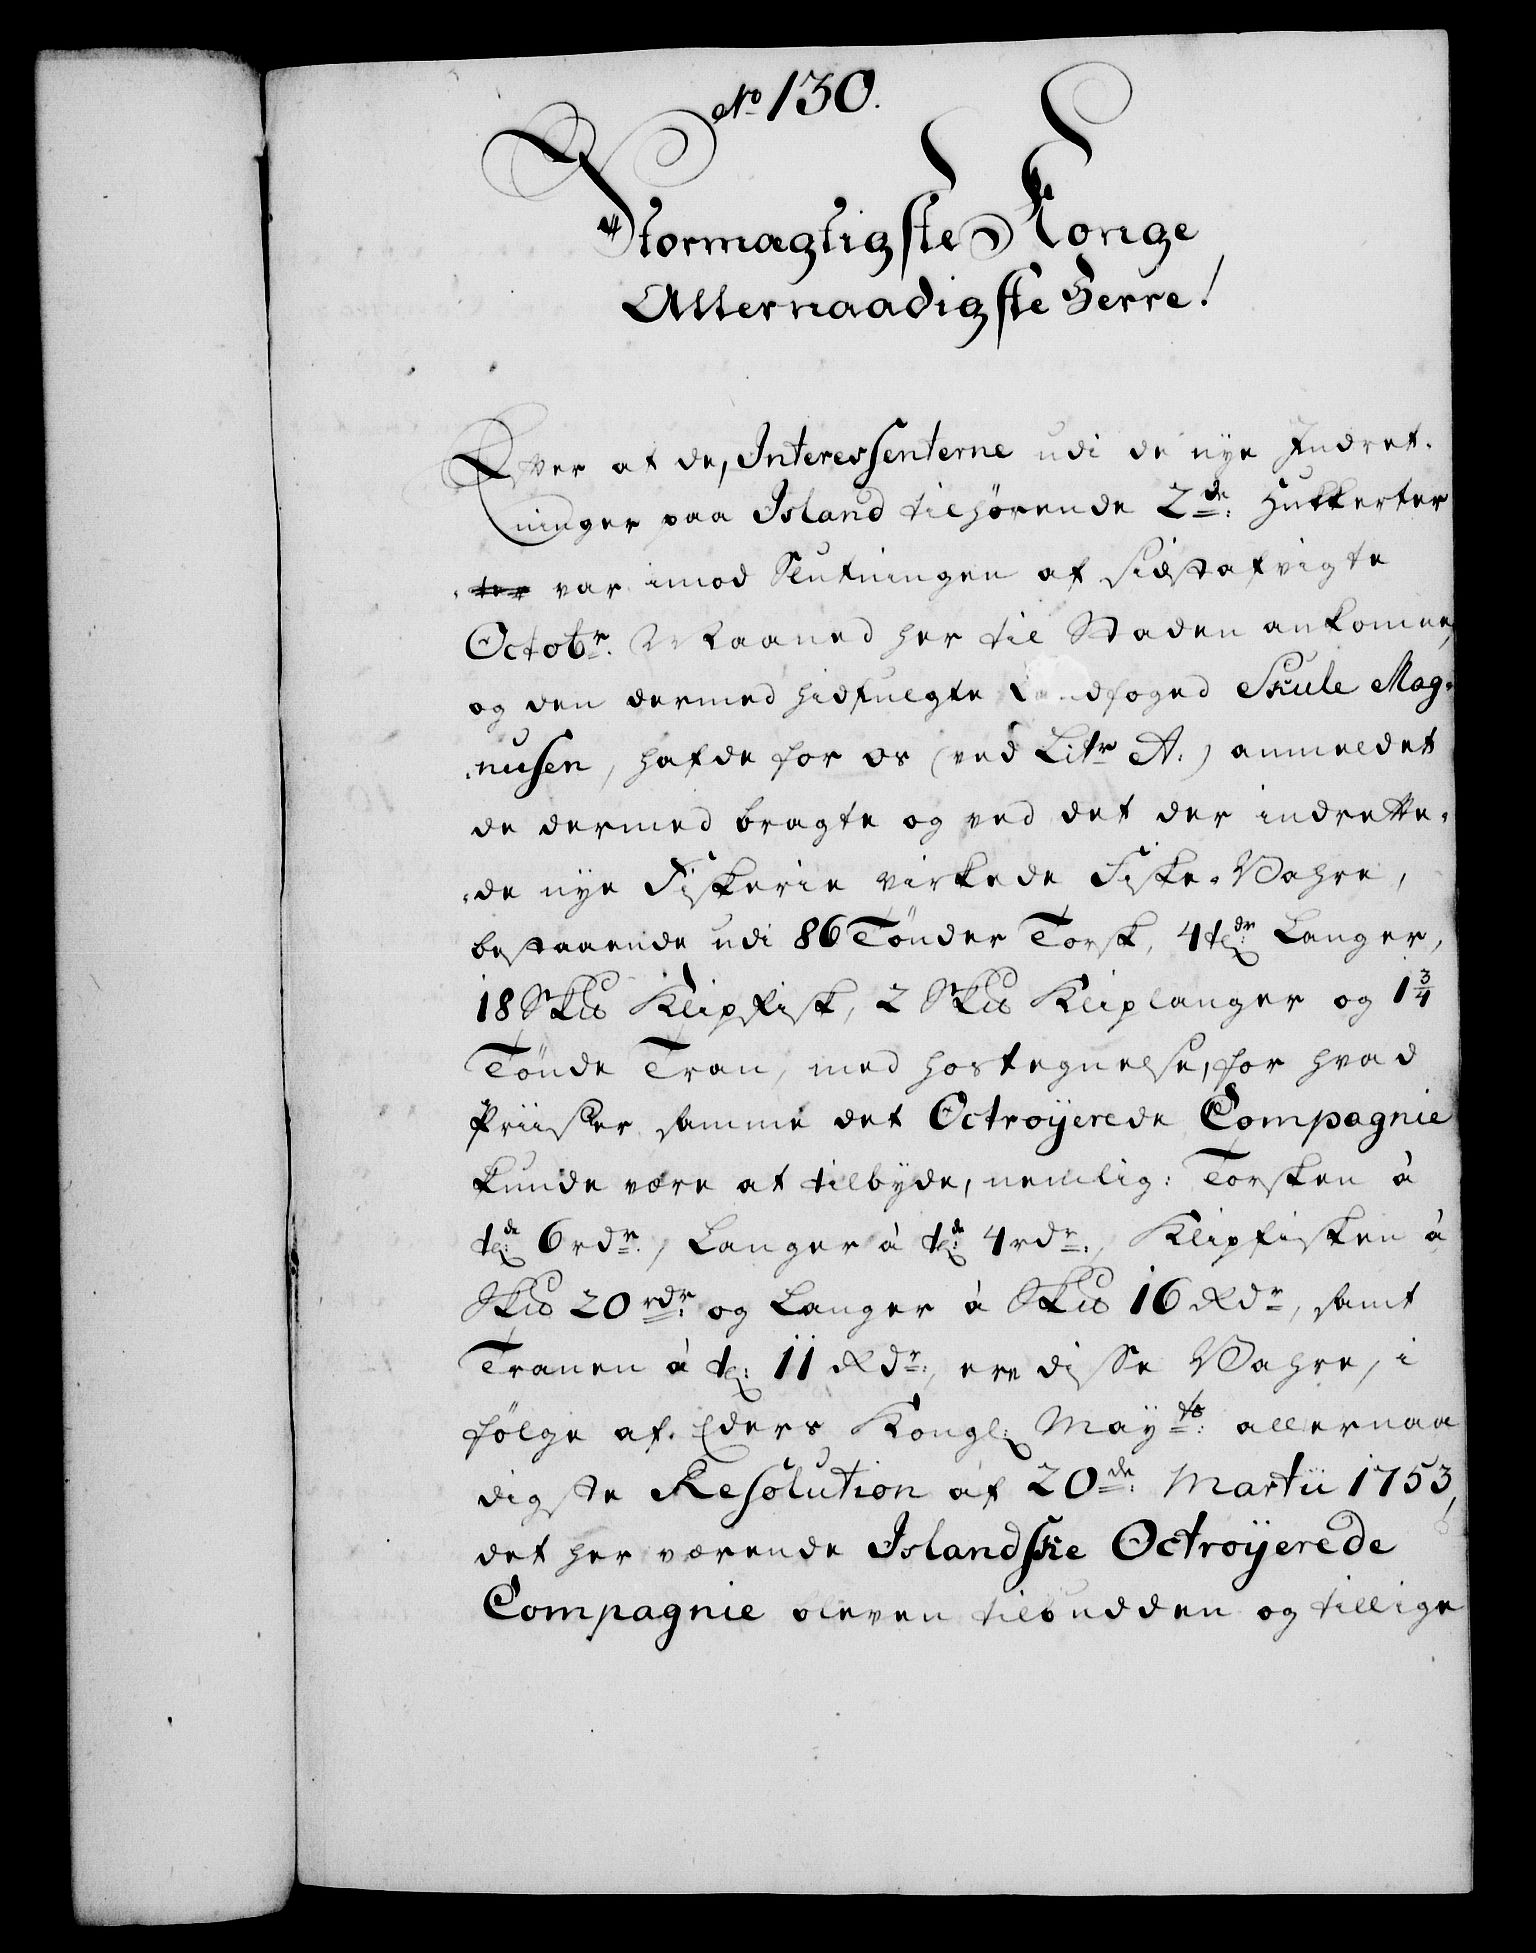 No 130.
Stormægtigste Konge
Allernaadigste Herre!
Efter at de, Interessenterne udi de nye Indret-
ninger paa Island tilhörende 2de: Hukkerter
ter var imod Slutningen af sidstafvigte
Octobr. Maaned her til Staden ankomne,
og den dermed hidfulgte Landfoged Skule Mag-
nusen, hafde for os (ved Litr A.) anmeldet
de dermed bragte og ved det der indrette-
de nye Fiskerie virkede Fiske-Vahre,
bestaaende udi 86 Tönder Torsk, 4 tdr Langer,
18 Sku Klipfisk, 2 Sku Kliplanger og 1 3/4
Tönde Tran, med hostegnelse, for hvad
Priiser samme det Octroÿerede Compagnie
kunde være at tilbyde, nemlig: Torsken à
tde 6 rdr., Langer à tde 4 rdr., Klipfisken à
Sku 20 rdr. og Langer à Sku 16 Rdr, samt
Tranen à t: 11 Rdr., ere disse Vahre, i
fölge af Eders Kongl: Maÿts: allernaa
digste Resolution af 20de: Martii 1753,
det her værende Islandske Octroÿerede
Compagnie bleven tilbudden og tillige